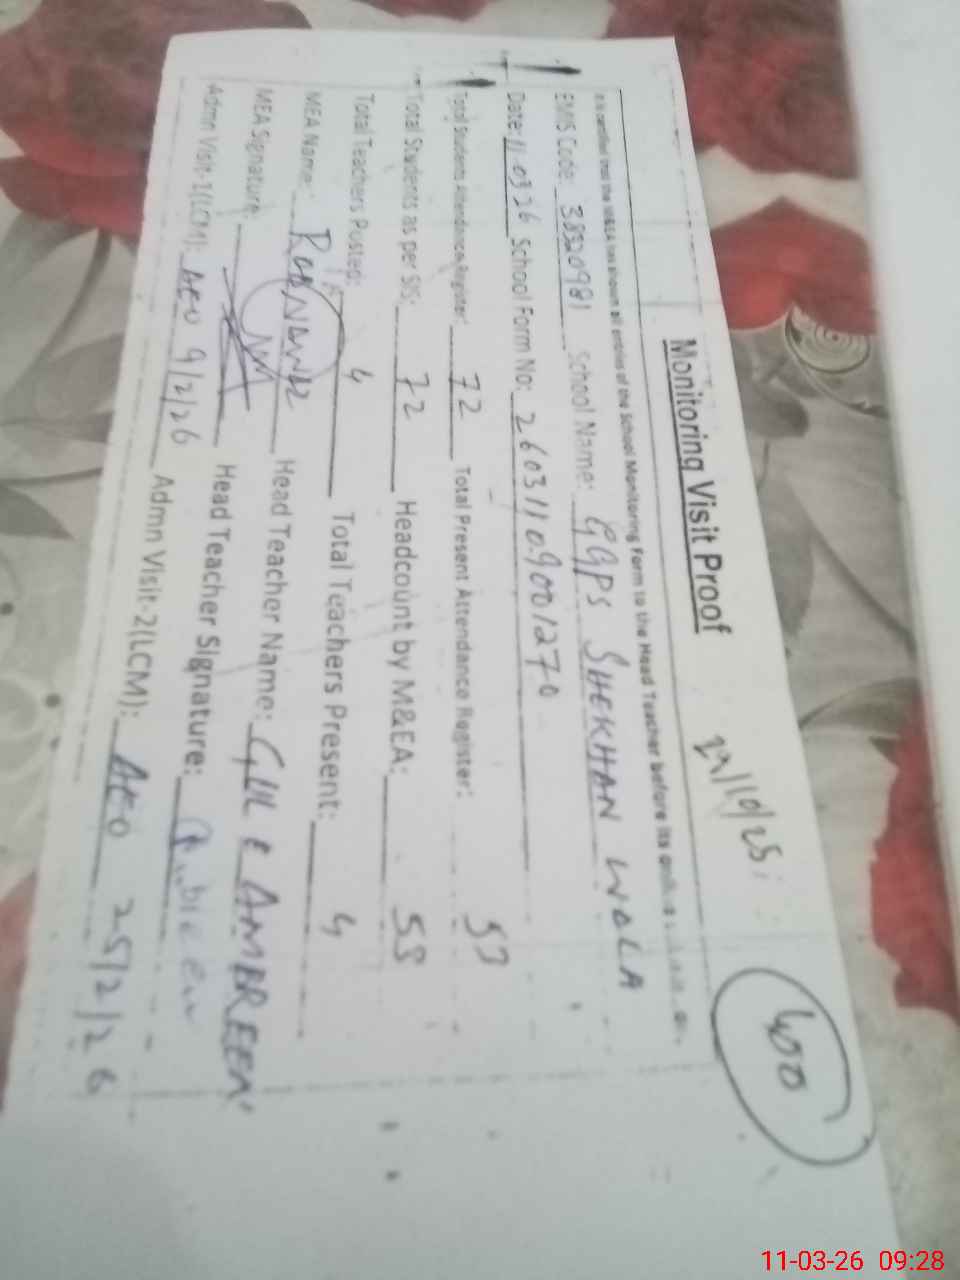 Monitoring Visit Proof 23/10/25
400
It is certified that the M&EA has shown all entries of the School Monitoring Form to the Head Teacher before its
EMIS Code: 38520981 School Name: GGPS SHEKHAN WALA
Date: 11-03 26 School Form No: 26031109001270
Total Students Attendance Register: 72 Total Present Attendance Register: 53
Total Students as per SIS: 72 Headcount by M&EA: 53
Total Teachers Posted: 4 Total Teachers Present: 4
MEA Name: RAB NAWAZ Head Teacher Name: GUL E AMBREEN
MEA Signature: Head Teacher Signature:
Admn Visit-1(LCM): AEO 9/2/26 Admn Visit-2(LCM): AEO 25/2/26
11-03-26 09:28